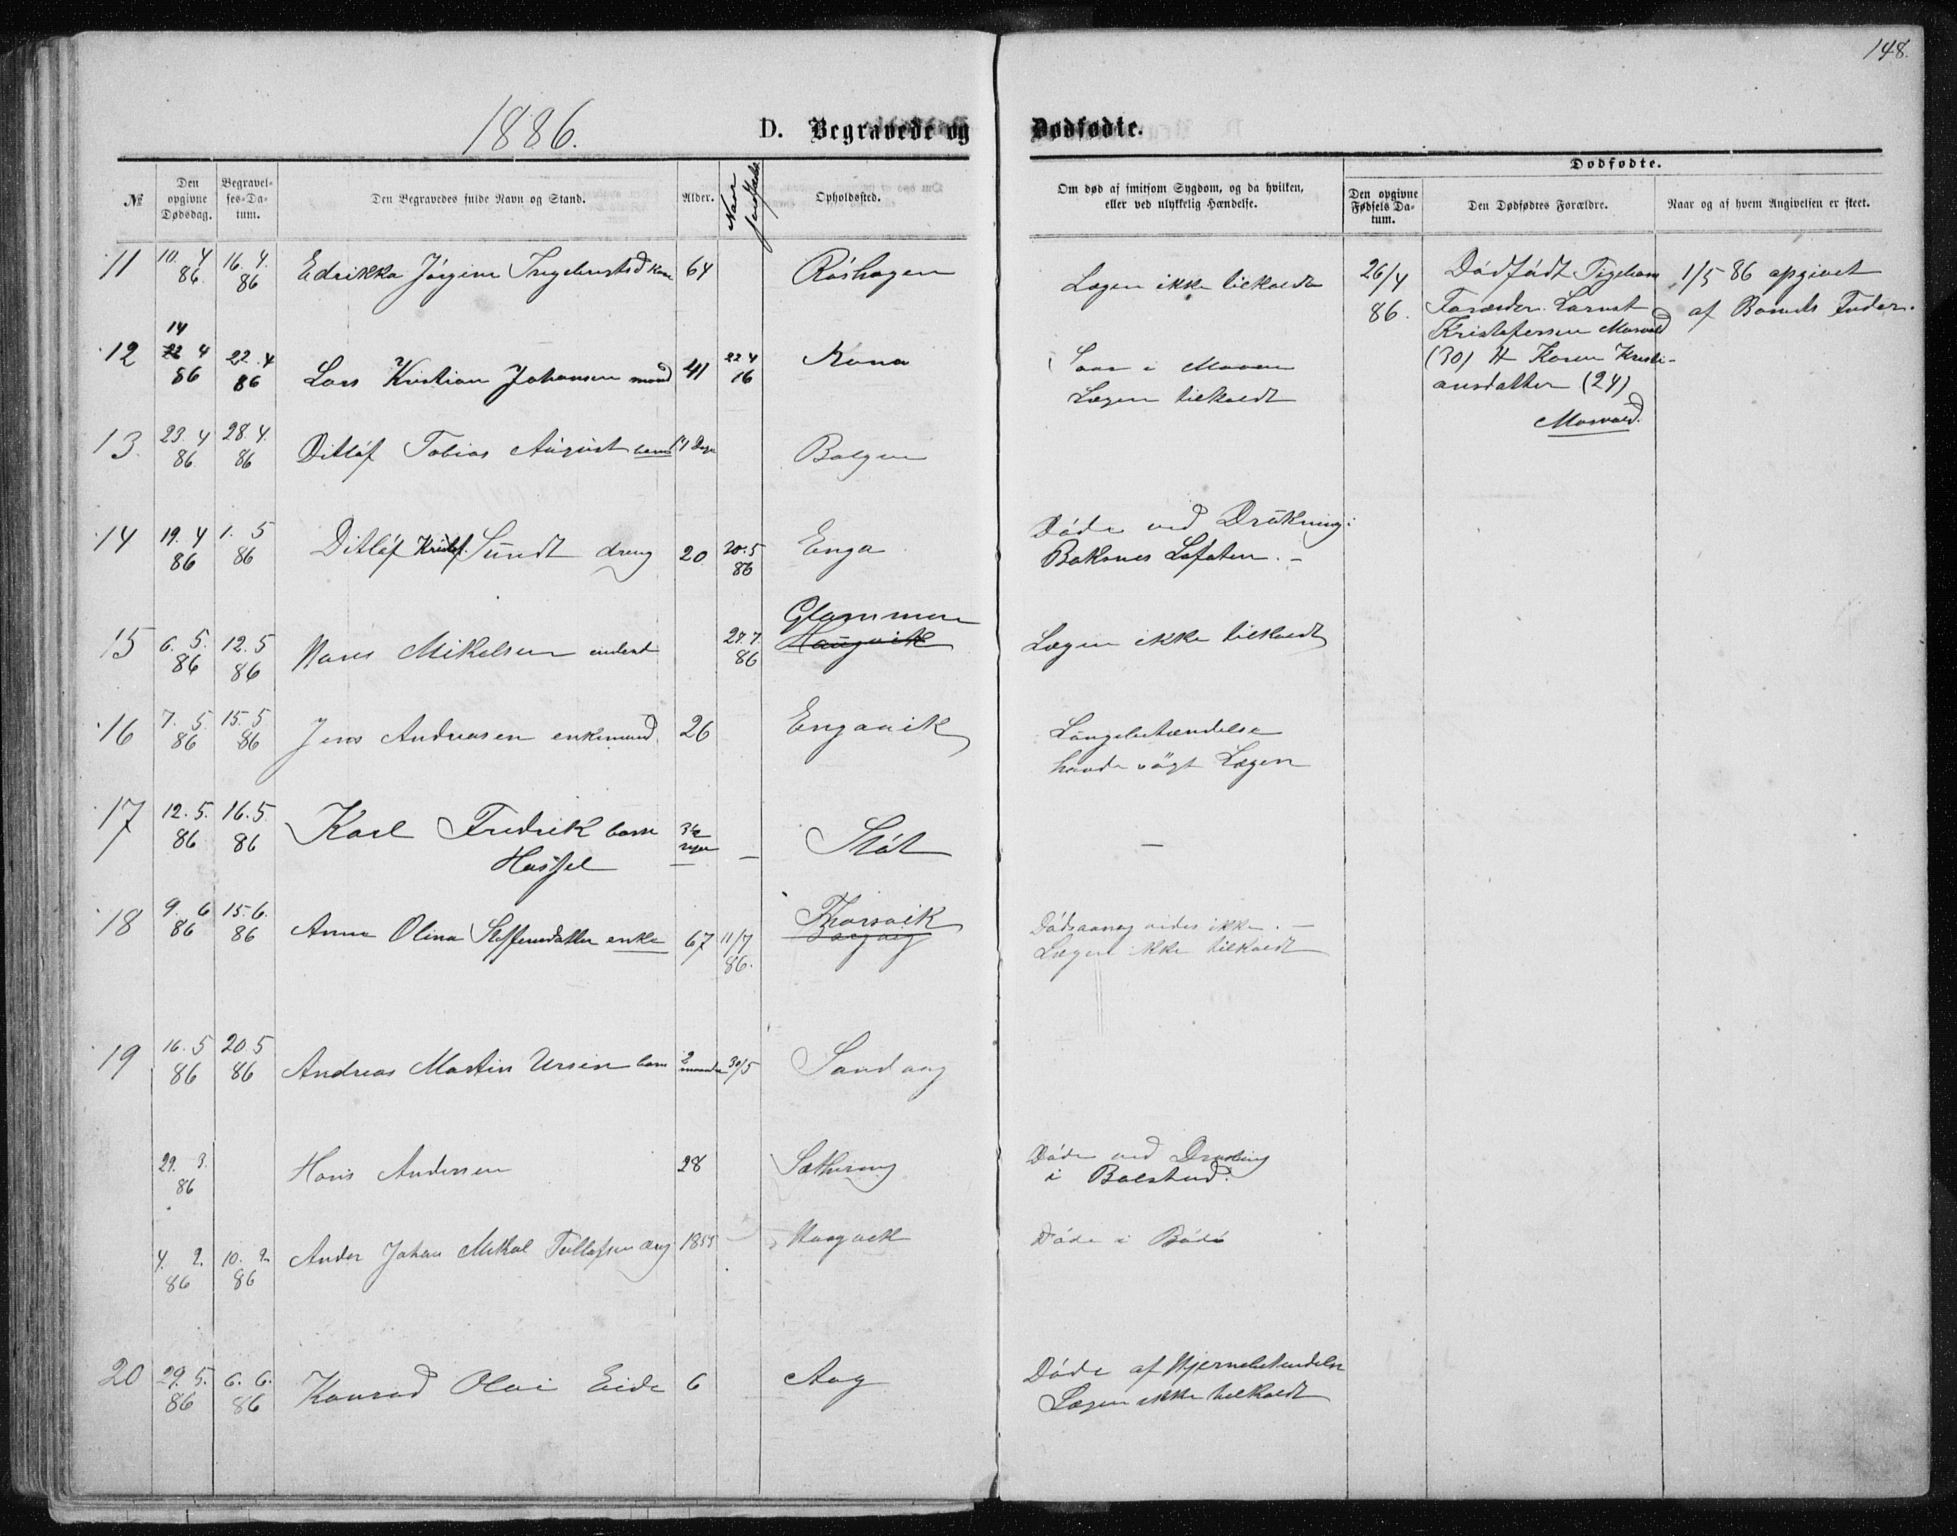 148.
1886.
D. Begravede og Dødfødte.
Dødfødte.
№
Den opgivne Dødsdag.
Begravelses-Datum.
Den Begravedes fulde Navn og Stand.
Alder.
Naar
Opholdssted.
Om død af smitsom Sygdom, og da hvilken, eller ved ulykkelig Hændelse.
Den opgivne Fødsels Datum.
Den Dødfødtes Forældre.
Naar og af hvem Angivelsen er skeet.
11 10. 4 86 16. 4. 86 Edrikka Jørgine 64 Röshagen Lægen ikke tilkaldt
26/4 86. Dödfödt
Forælder
Kristofersen Mosvold
(30) H Karen Kristi-
ansdatter (24)
Mosvold.
1/5 86 opgivet
af Barnets Fader.
12 14 22 4 86 22. 4 86 Lars Kristian Johansen mand 41 22 4 16 i Maven
Lægen tilkaldt
13 23. 4 86 28. 4. 86 Ditlöf Tobias August barn 14 Dage Bolgen
14 19. 4 86 1. 5 86 Ditlöf Kristof. Sundt dreng 20 20. 5 86 Enga Döde ved Drukning i
Baksnes Lofoten. –
15 6. 5. 86 12. 5 86 Hans Mikelsen 86 Glommen
Haugvik Lægen ikke tilkaldt
16 7. 5. 86 15. 5 86 Jens Andreasen enkemand 26 Engavik Lungebetændelse
havde sögt Lægen
17 12. 5. 86 16. 5 86 Karl Fredrik barn
Hassel 3½ — Stöt —
18 9. 6 86 15. 6. 86 Anna Olina Steffensdatter enke 67 11/7 86. Thorsvik Dödsaarsag vides ikke. –
Lægen ikke tilkaldt
19 16. 5 86 20. 5 86 Andreas Martin Ursin barn 2 maaneder 30/5 Sandvag
29. 3. 86 Hans Andersen 28 Döde ved
i Balstad.
4. 2. 86 10. 2. 86 Johan Mikal 1855 Haugvik Döde i Bodö
20 29. 5. 86 6. 6. 86 Konrad Olai Eide 6 Aag Döde af Hjernebetændelse
Lægen ikke tilkaldt